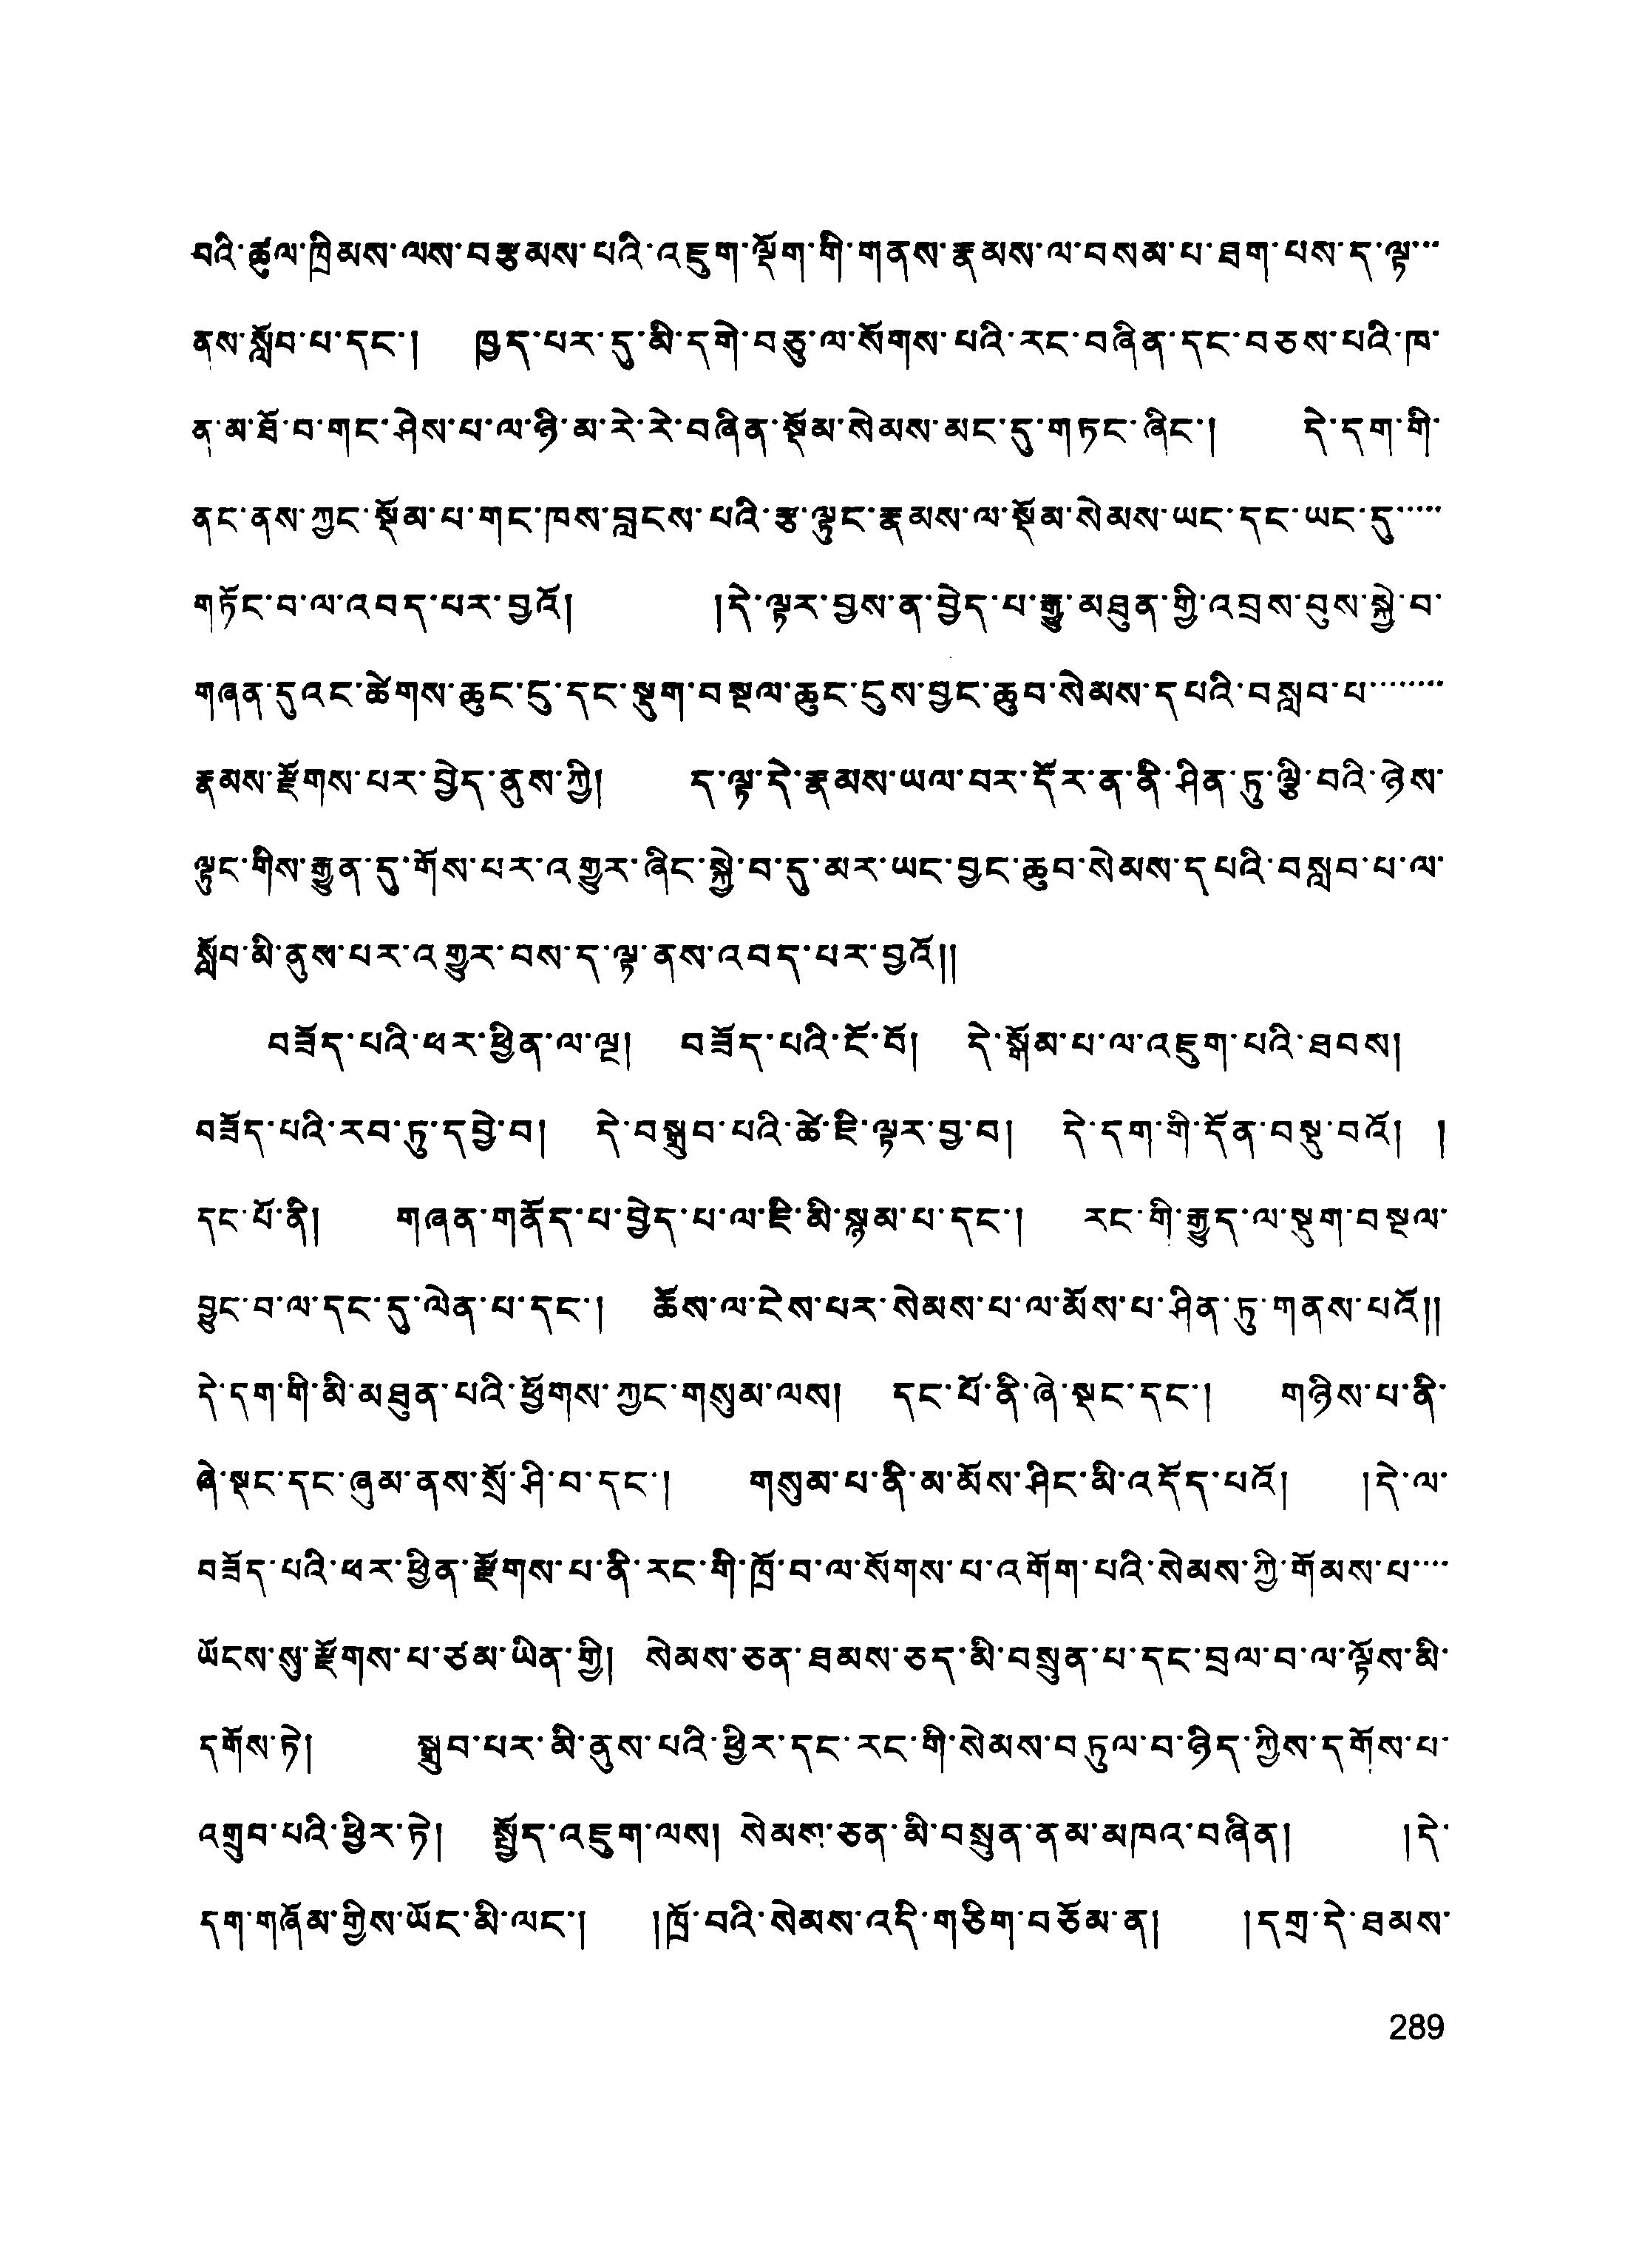 བའི་ཚུལ་ཁྲིམས་ལས་བརྩམས་པའི་འཇུག་ལྡོག་གི་གནས་རྣམས་ལ་བསམ་པ་ཐག་པས་ད་ལྟ་་་
ནས་སློབ་པ་དང་། ཁྱད་པར་དུ་མི་དགེ་བཅུ་ལ་སོགས་པའི་རང་བཞིན་དང་བཅས་པའི་ཁ་
ན་མ་ཐོ་བ་གང་ཤེས་པ་ལ་ཉི་མ་རེ་རེ་བཞིན་སྡོམ་སེམས་མང་དུ་གཏང་ཞིང་། དེ་དག་གི་
ནང་ནས་ཀྱང་སྡོམ་པ་གང་ཁས་བླངས་པའི་རྩ་ལྟུང་རྣམས་ལ་སྡོམ་སེམས་ཡང་དང་ཡང་དུ་་་་་
གཏོང་བ་ལ་འབད་པར་བྱའོ། །དེ་ལྟར་བྱས་ན་བྱེད་པ་རྒྱུ་མཐུན་གྱི་འབྲས་བུས་སྐྱེ་བ་
གཞན་དུའང་ཚེགས་ཆུང་ངུ་དང་སྡུག་བསྔལ་ཆུང་ངུས་བྱང་ཆུབ་སེམས་དཔའི་བསླབ་པ་་་་་་་་
རྣམས་རྫོགས་པར་བྱེད་ནུས་ཀྱི། ད་ལྟ་དེ་རྣམས་ཡལ་བར་དོར་ན་ནི་ཤིན་ཏུ་ལྕི་བའི་ཉེས་
ལྟུང་གིས་རྒྱུན་དུ་གོས་པར་འགྱུར་ཞིང་སྐྱེ་བ་དུ་མར་ཡང་བྱང་ཆུབ་སེམས་དཔའི་བསླབ་པ་ལ་
སློབ་མི་ནུས་པར་འགྱུར་བས་ད་ལྟ་ནས་འབད་པར་བྱའོ།།
བཟོད་པའི་ཕར་ཕྱིན་ལ་ལྔ། བཟོད་པའི་ངོ་བོ། དེ་སྒོམ་པ་ལ་འཇུག་པའི་ཐབས།
བཟོད་པའི་རབ་ཏུ་དབྱེ་བ། དེ་བསྒྲུབ་པའི་ཚེ་ཇི་ལྟར་བྱ་བ། དེ་དག་གི་དོན་བསྡུ་བའོ། །
དང་པོ་ནི། གཞན་གནོད་པ་བྱེད་པ་ལ་ཇི་མི་སྙམ་པ་དང་། རང་གི་རྒྱུད་ལ་སྡུག་བསྔལ་
བྱུང་བ་ལ་དང་དུ་ལེན་པ་དང་། ཆོས་ལ་ངེས་པར་སེམས་པ་ལ་མོས་པ་ཤིན་ཏུ་གནས་པའོ།།
དེ་དག་གི་མི་མཐུན་པའི་ཕྱོགས་ཀྱང་གསུམ་ལས། དང་པོ་ནི་ཞེ་སྡང་དང་། གཉིས་པ་ནི་
ཞེ་སྡང་དང་ཞུམ་ནས་སྲོ་ཤི་བ་དང་། གསུམ་པ་ནི་མ་མོས་ཤིང་མི་འདོད་པའོ། །དེ་ལ་
བཟོད་པའི་ཕར་ཕྱིན་རྫོགས་པ་ནི་རང་གི་ཁྲོ་བ་ལ་སོགས་པ་འགོག་པའི་སེམས་ཀྱི་གོམས་པ་་་་
ཡོངས་སུ་རྫོགས་པ་ཙམ་ཡིན་གྱི། སེམས་ཅན་ཐམས་ཅད་མི་བསྲུན་པ་དང་བྲལ་བ་ལ་ལྟོས་མི་
དགོས་ཏེ། སྒྲུབ་པར་མི་ནུས་པའི་ཕྱིར་དང་རང་གི་སེམས་བཏུལ་བ་ཉིད་ཀྱིས་དགོས་པ་
འགྲུབ་པའི་ཕྱིར་ཏེ། སྤྱོད་འཇུག་ལས། སེམས་ཅན་མི་བསྲུན་ནམ་མཁའ་བཞིན། །དེ་
དག་གཞོམ་གྱིས་ཡོང་མི་ལང་། །ཁྲོ་བའི་སེམས་འདི་གཅིག་བཅོམ་ན། །དགྲ་དེ་ཐམས་
289